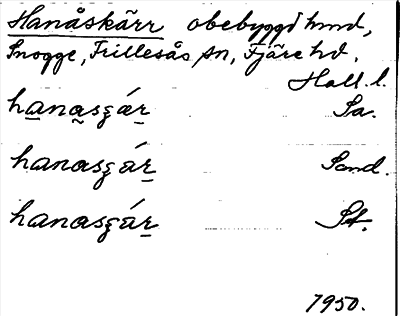 Hanåskärr obebyggd hmd,
Snogge, Frillesås sn, Fjäre hd.
Hall. l.
hanasgár Sa.
hanasgár Sand.
hanasgár St.
1950.